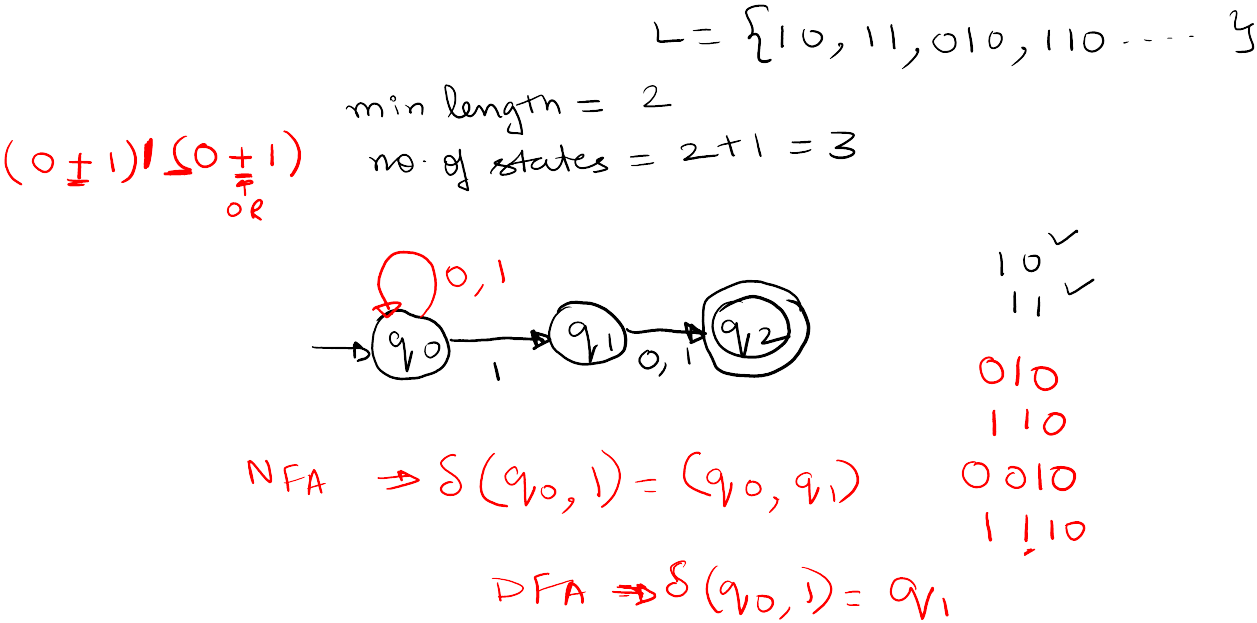 L = {10, 11, 010, 110 ..... }
min length = 2
no. of states = 2+1 = 3
(0+1)1(0+1)
OR
0, 1
q0
1
q1
0, 1
q2
10 ✓
11 ✓
010
110
0010
1110
NFA → δ(q0, 1) = (q0, q1)
DFA → δ(q0, 1) = q1